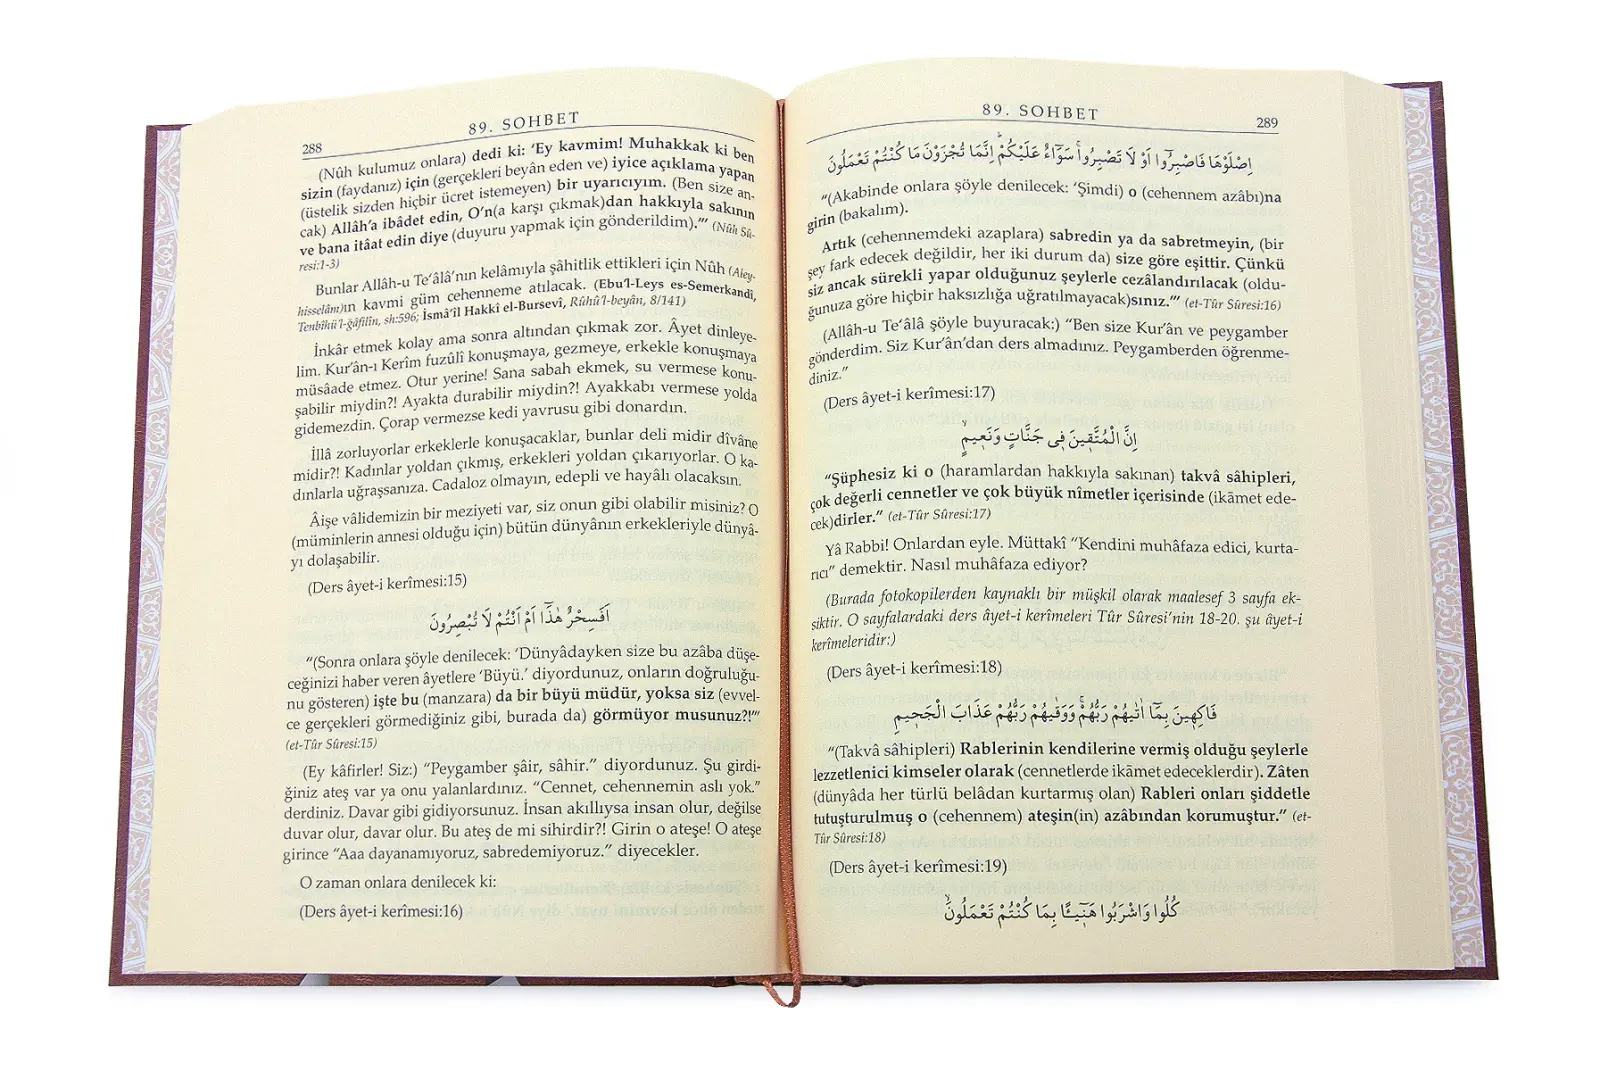 288
89. SOHBET
(Nûh kulumuz onlara) dedi ki: ‘Ey kavmim! Muhakkak ki ben
sizin (faydanız) için (gerçekleri beyân eden ve) iyice açıklama yapan
(üstelik sizden hiçbir ücret istemeyen) bir uyarıcıyım. (Ben size an-
cak) Allâh’a ibâdet edin, O’n(a karşı çıkmak)dan hakkıyla sakının
ve bana itâat edin diye (duyuru yapmak için gönderildim).”’ (Nûh Sû-
resi:1-3)
Bunlar Allâh-u Te‘âlâ’nın kelâmıyla şâhitlik ettikleri için Nûh (Aley-
hisselâm)ın kavmi güm cehenneme atılacak. (Ebu’l-Leys es-Semerkandî,
Tenbîhü’l-ğâfilîn, sh:596; İsmâ‘îl Hakkî el-Bursevî, Rûhû’l-beyân, 8/141)
İnkâr etmek kolay ama sonra altından çıkmak zor. Âyet dinleye-
lim. Kur’ân-ı Kerîm fuzûlî konuşmaya, gezmeye, erkekle konuşmaya
müsâade etmez. Otur yerine! Sana sabah ekmek, su vermese konu-
şabilir miydin?! Ayakta durabilir miydin?! Ayakkabı vermese yolda
gidemezdin. Çorap vermezse kedi yavrusu gibi donardın.
İllâ zorluyorlar erkeklerle konuşacaklar, bunlar deli midir dîvâne
midir?! Kadınlar yoldan çıkmış, erkekleri yoldan çıkarıyorlar. O ka-
dınlarla uğraşsanıza. Cadaloz olmayın, edepli ve hayâlı olacaksın.
Âişe vâlidemizin bir meziyeti var, siz onun gibi olabilir misiniz? O
(müminlerin annesi olduğu için) bütün dünyânın erkekleriyle dünyâ-
yı dolaşabilir.
(Ders âyet-i kerîmesi:15)
اَفَسِحْرٌ هٰذَٓا اَمْ اَنْتُمْ لَا تُبْصِرُونَ
“(Sonra onlara şöyle denilecek: ‘Dünyâdayken size bu azâba düşe-
ceğinizi haber veren âyetlere ‘Büyü.’ diyordunuz, onların doğruluğu-
nu gösteren) işte bu (manzara) da bir büyü müdür, yoksa siz (evvel-
ce gerçekleri görmediğiniz gibi, burada da) görmüyor musunuz?!”’
(et-Tûr Sûresi:15)
(Ey kâfirler! Siz:) “Peygamber şâir, sâhir.” diyordunuz. Şu girdi-
ğiniz ateş var ya onu yalanlardınız. “Cennet, cehennemin aslı yok.”
derdiniz. Davar gibi gidiyorsunuz. İnsan akıllıysa insan olur, değilse
duvar olur, davar olur. Bu ateş de mi sihirdir?! Girin o ateşe! O ateşe
girince “Aaa dayanamıyoruz, sabredemiyoruz.” diyecekler.
O zaman onlara denilecek ki:
(Ders âyet-i kerîmesi:16)
89. SOHBET
289
اِصْلَوْهَا فَاصْبِرُٓوا اَوْ لَا تَصْبِرُواۚ سَوَٓاءٌ عَلَيْكُمْۜ اِنَّمَا تُجْزَوْنَ مَا كُنْتُمْ تَعْمَلُونَ
“(Akabinde onlara şöyle denilecek: ‘Şimdi) o (cehennem azâbı)na
girin (bakalım).
Artık (cehennemdeki azaplara) sabredin ya da sabretmeyin, (bir
şey fark edecek değildir, her iki durum da) size göre eşittir. Çünkü
siz ancak sürekli yapar olduğunuz şeylerle cezâlandırılacak (oldu-
ğunuza göre hiçbir haksızlığa uğratılmayacak)sınız.”’ (et-Tûr Sûresi:16)
(Allâh-u Te‘âlâ şöyle buyuracak:) “Ben size Kur’ân ve peygamber
gönderdim. Siz Kur’ân’dan ders almadınız. Peygamberden öğrenme-
diniz.”
(Ders âyet-i kerîmesi:17)
اِنَّ الْمُتَّق۪ينَ ف۪ي جَنَّاتٍ وَنَع۪يمٍۙ
“Şüphesiz ki o (haramlardan hakkıyla sakınan) takvâ sâhipleri,
çok değerli cennetler ve çok büyük nîmetler içerisinde (ikâmet ede-
cek)dirler.” (et-Tûr Sûresi:17)
Yâ Rabbi! Onlardan eyle. Müttakî “Kendini muhâfaza edici, kurta-
rıcı” demektir. Nasıl muhâfaza ediyor?
(Burada fotokopilerden kaynaklı bir müşkil olarak maalesef 3 sayfa ek-
siktir. O sayfalardaki ders âyet-i kerîmeleri Tûr Sûresi’nin 18-20. şu âyet-i
kerîmeleridir:)
(Ders âyet-i kerîmesi:18)
فَاكِه۪ينَ بِمَٓا اٰتٰيهُمْ رَبُّهُمْۚ وَوَقٰيهُمْ رَبُّهُمْ عَذَابَ الْجَح۪يمِ
“(Takvâ sâhipleri) Rablerinin kendilerine vermiş olduğu şeylerle
lezzetlenici kimseler olarak (cennetlerde ikâmet edeceklerdir). Zâten
(dünyâda her türlü belâdan kurtarmış olan) Rableri onları şiddetle
tutuşturulmuş o (cehennem) ateşin(in) azâbından korumuştur.” (et-
Tûr Sûresi:18)
(Ders âyet-i kerîmesi:19)
كُلُوا وَاشْرَبُوا هَن۪ٓيـًٔا بِمَا كُنْتُمْ تَعْمَلُونَۙ